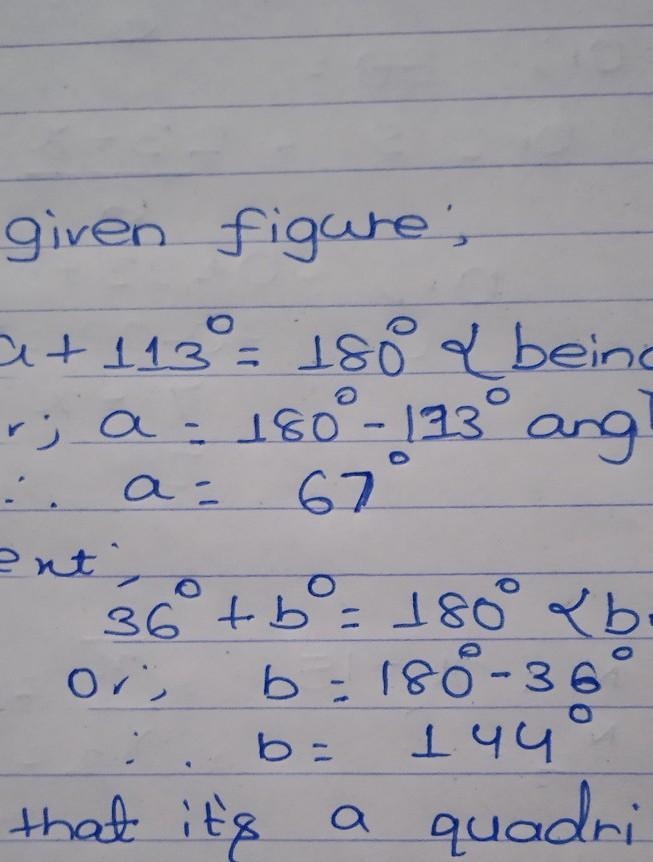 given figure;
a + 113° = 180° { being
r; a = 180° - 113° angl
∴ a = 67°
ext;
36° + b° = 180° { b
or; b = 180° - 36°
∴ b = 144°
that it's a quadri